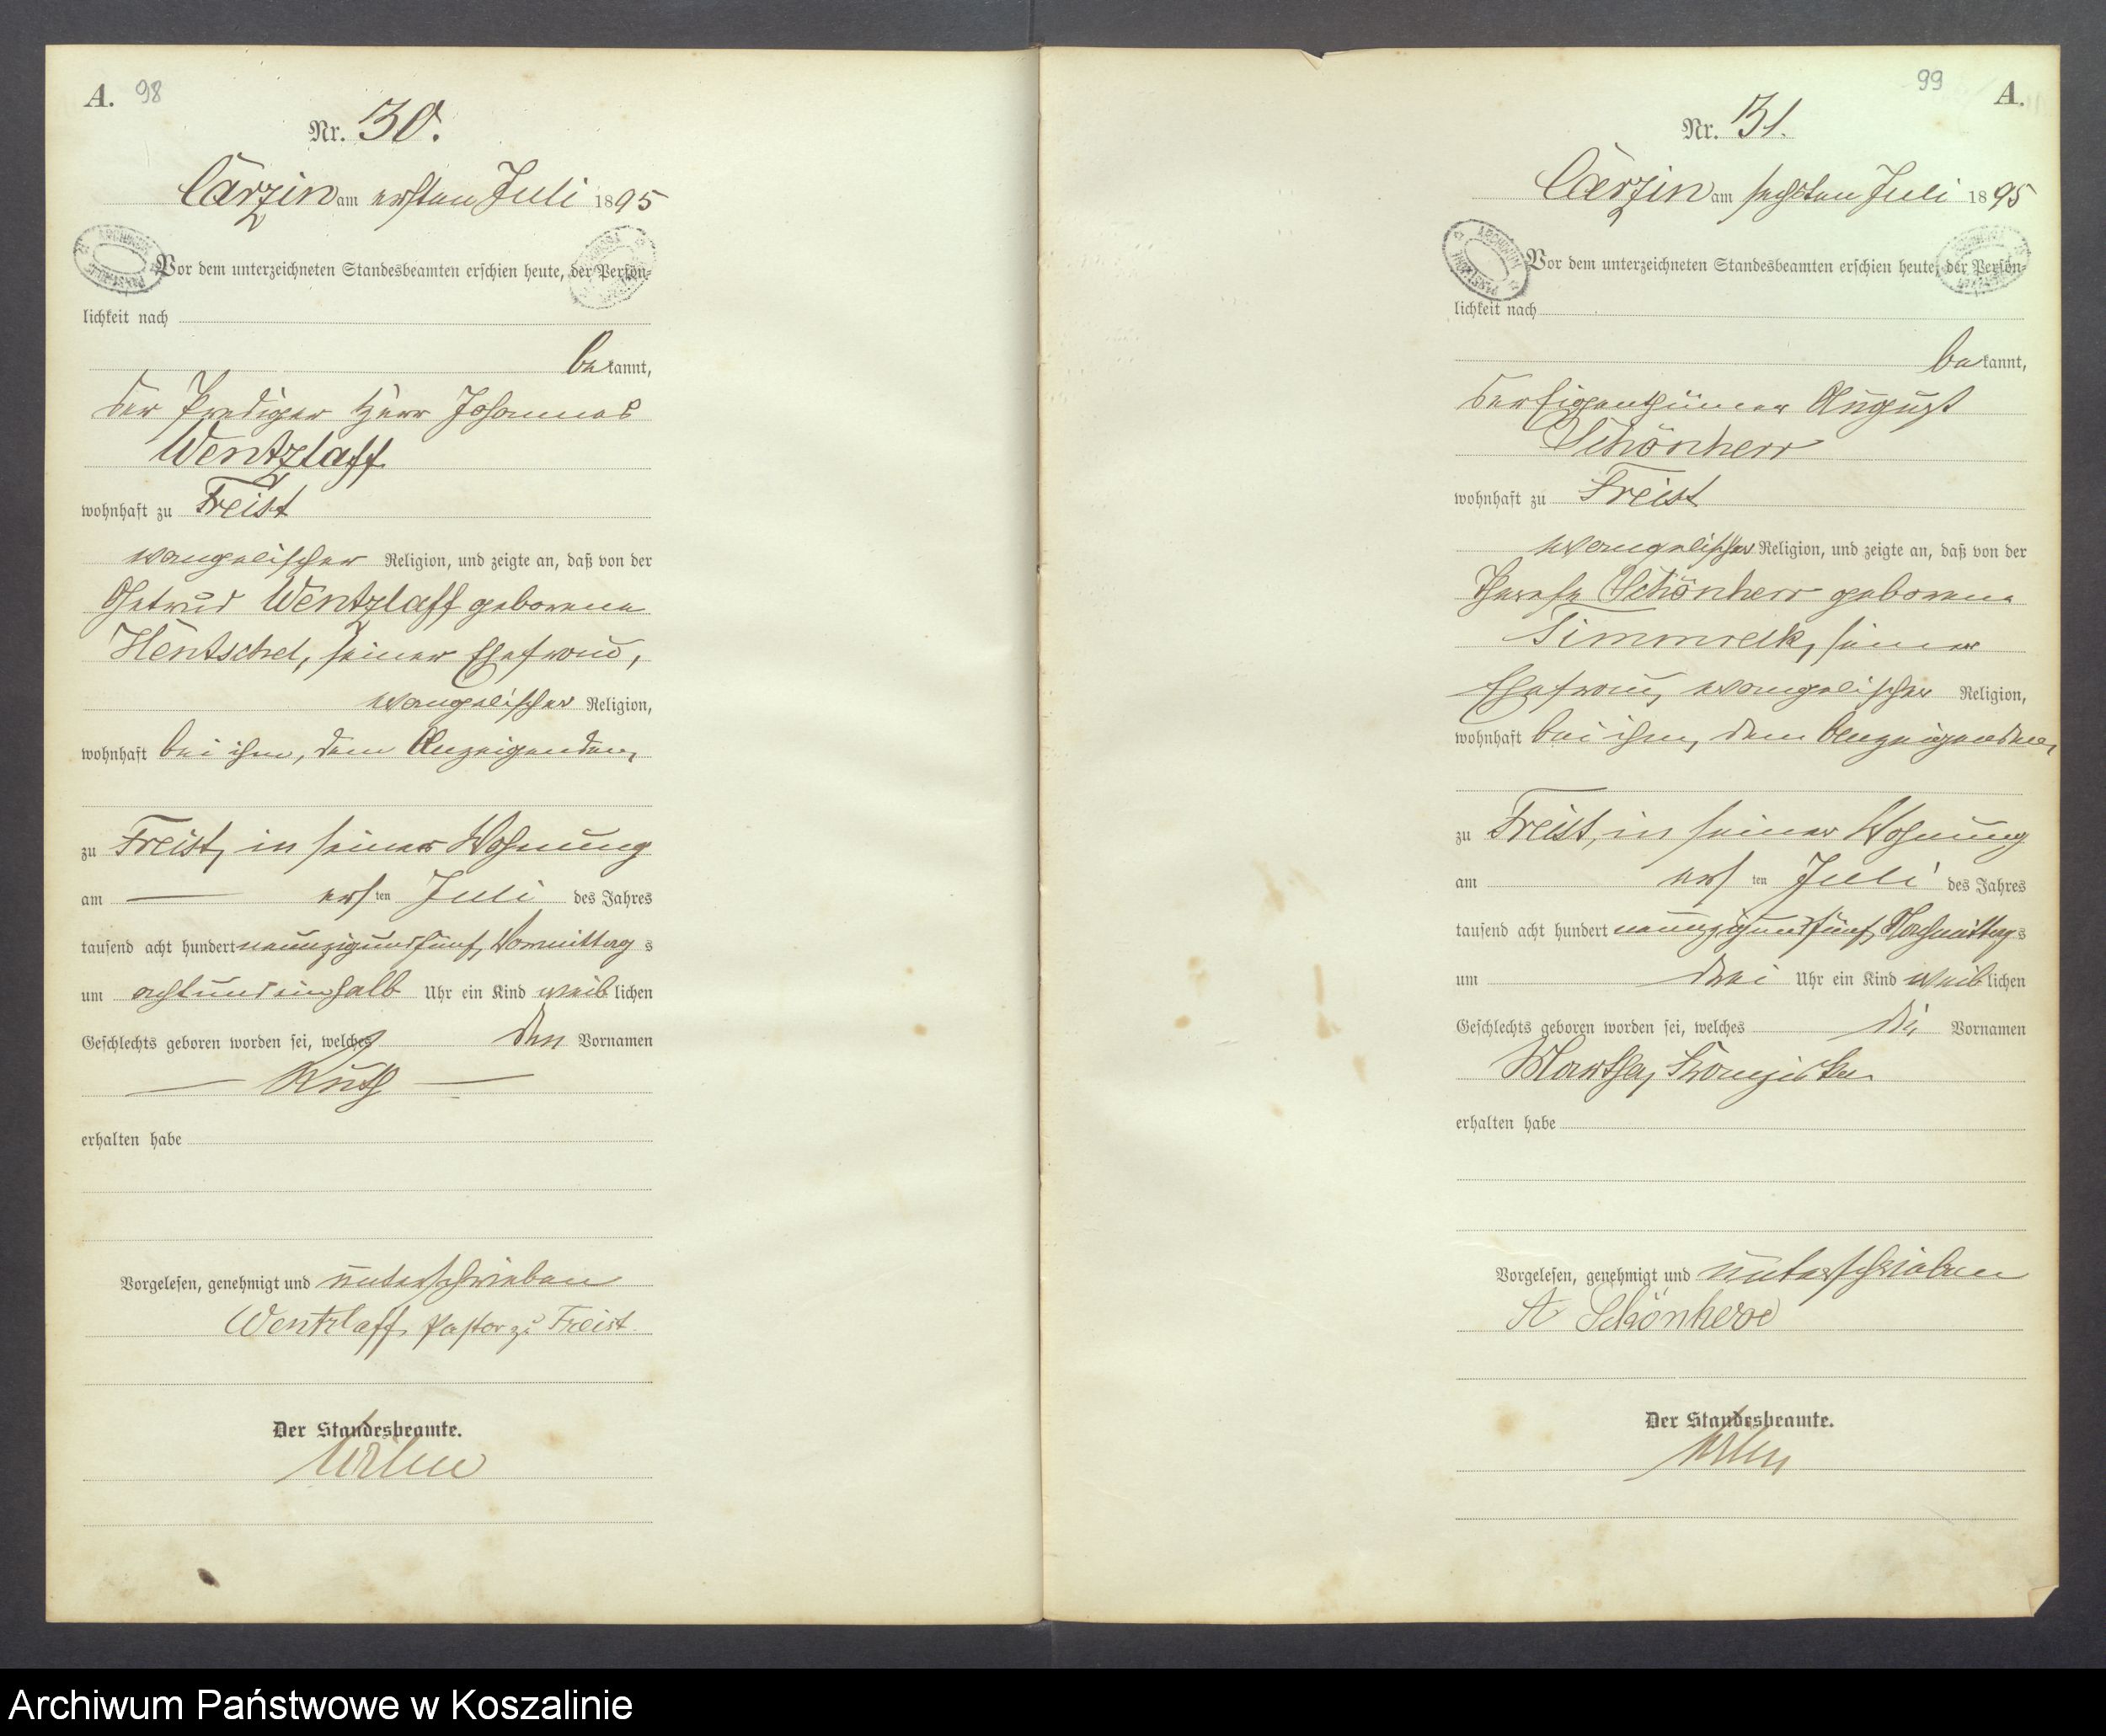 A. 98
Nr. 30.
Carzin am ersten Juli 1895
Vor dem unterzeichneten Standesbeamten erschien heute, der Persön-
lichkeit nach
bekannt,
der Prediger Herr Johannes
Wentzlaff
wohnhaft zu Freist
evangelischer Religion, und zeigte an, daß von der
Wentzlaff geborene
Hentschel, seiner Ehefrau,
evangelischer Religion,
wohnhaft bei ihm, dem Anzeigenden,
zu Freist, in seiner Wohnung
am — ersten Juli des Jahres
tausend acht hundert neunzigundfünf, Vormittags
um achtundeinhalb Uhr ein Kind weiblichen
Geschlechts geboren worden sei, welches den Vornamen
— Ruth —
erhalten habe
Vorgelesen, genehmigt und unterschrieben
Wentzlaff, Pastor zu Freist.
Der Standesbeamte.
99 A.
Nr. 31.
Carzin am sechsten Juli 1895
Vor dem unterzeichneten Standesbeamten erschien heute, der Persön-
lichkeit nach
bekannt,
der Eigenthümer August
Schönherr
wohnhaft zu Freist
evangelischer Religion, und zeigte an, daß von der
Therese Schönherr geborene
Timmreck, seiner
Ehefrau, evangelischer Religion,
wohnhaft bei ihm, dem Anzeigenden,
zu Freist, in seiner Wohnung
am ersten Juli des Jahres
tausend acht hundert neunzigundfünf, Nachmittags
um drei Uhr ein Kind weiblichen
Geschlechts geboren worden sei, welches die Vornamen
Martha, Franziska
erhalten habe
Vorgelesen, genehmigt und unterschrieben
A Schönherr
Der Standesbeamte.
Archiwum Państwowe w Koszalinie